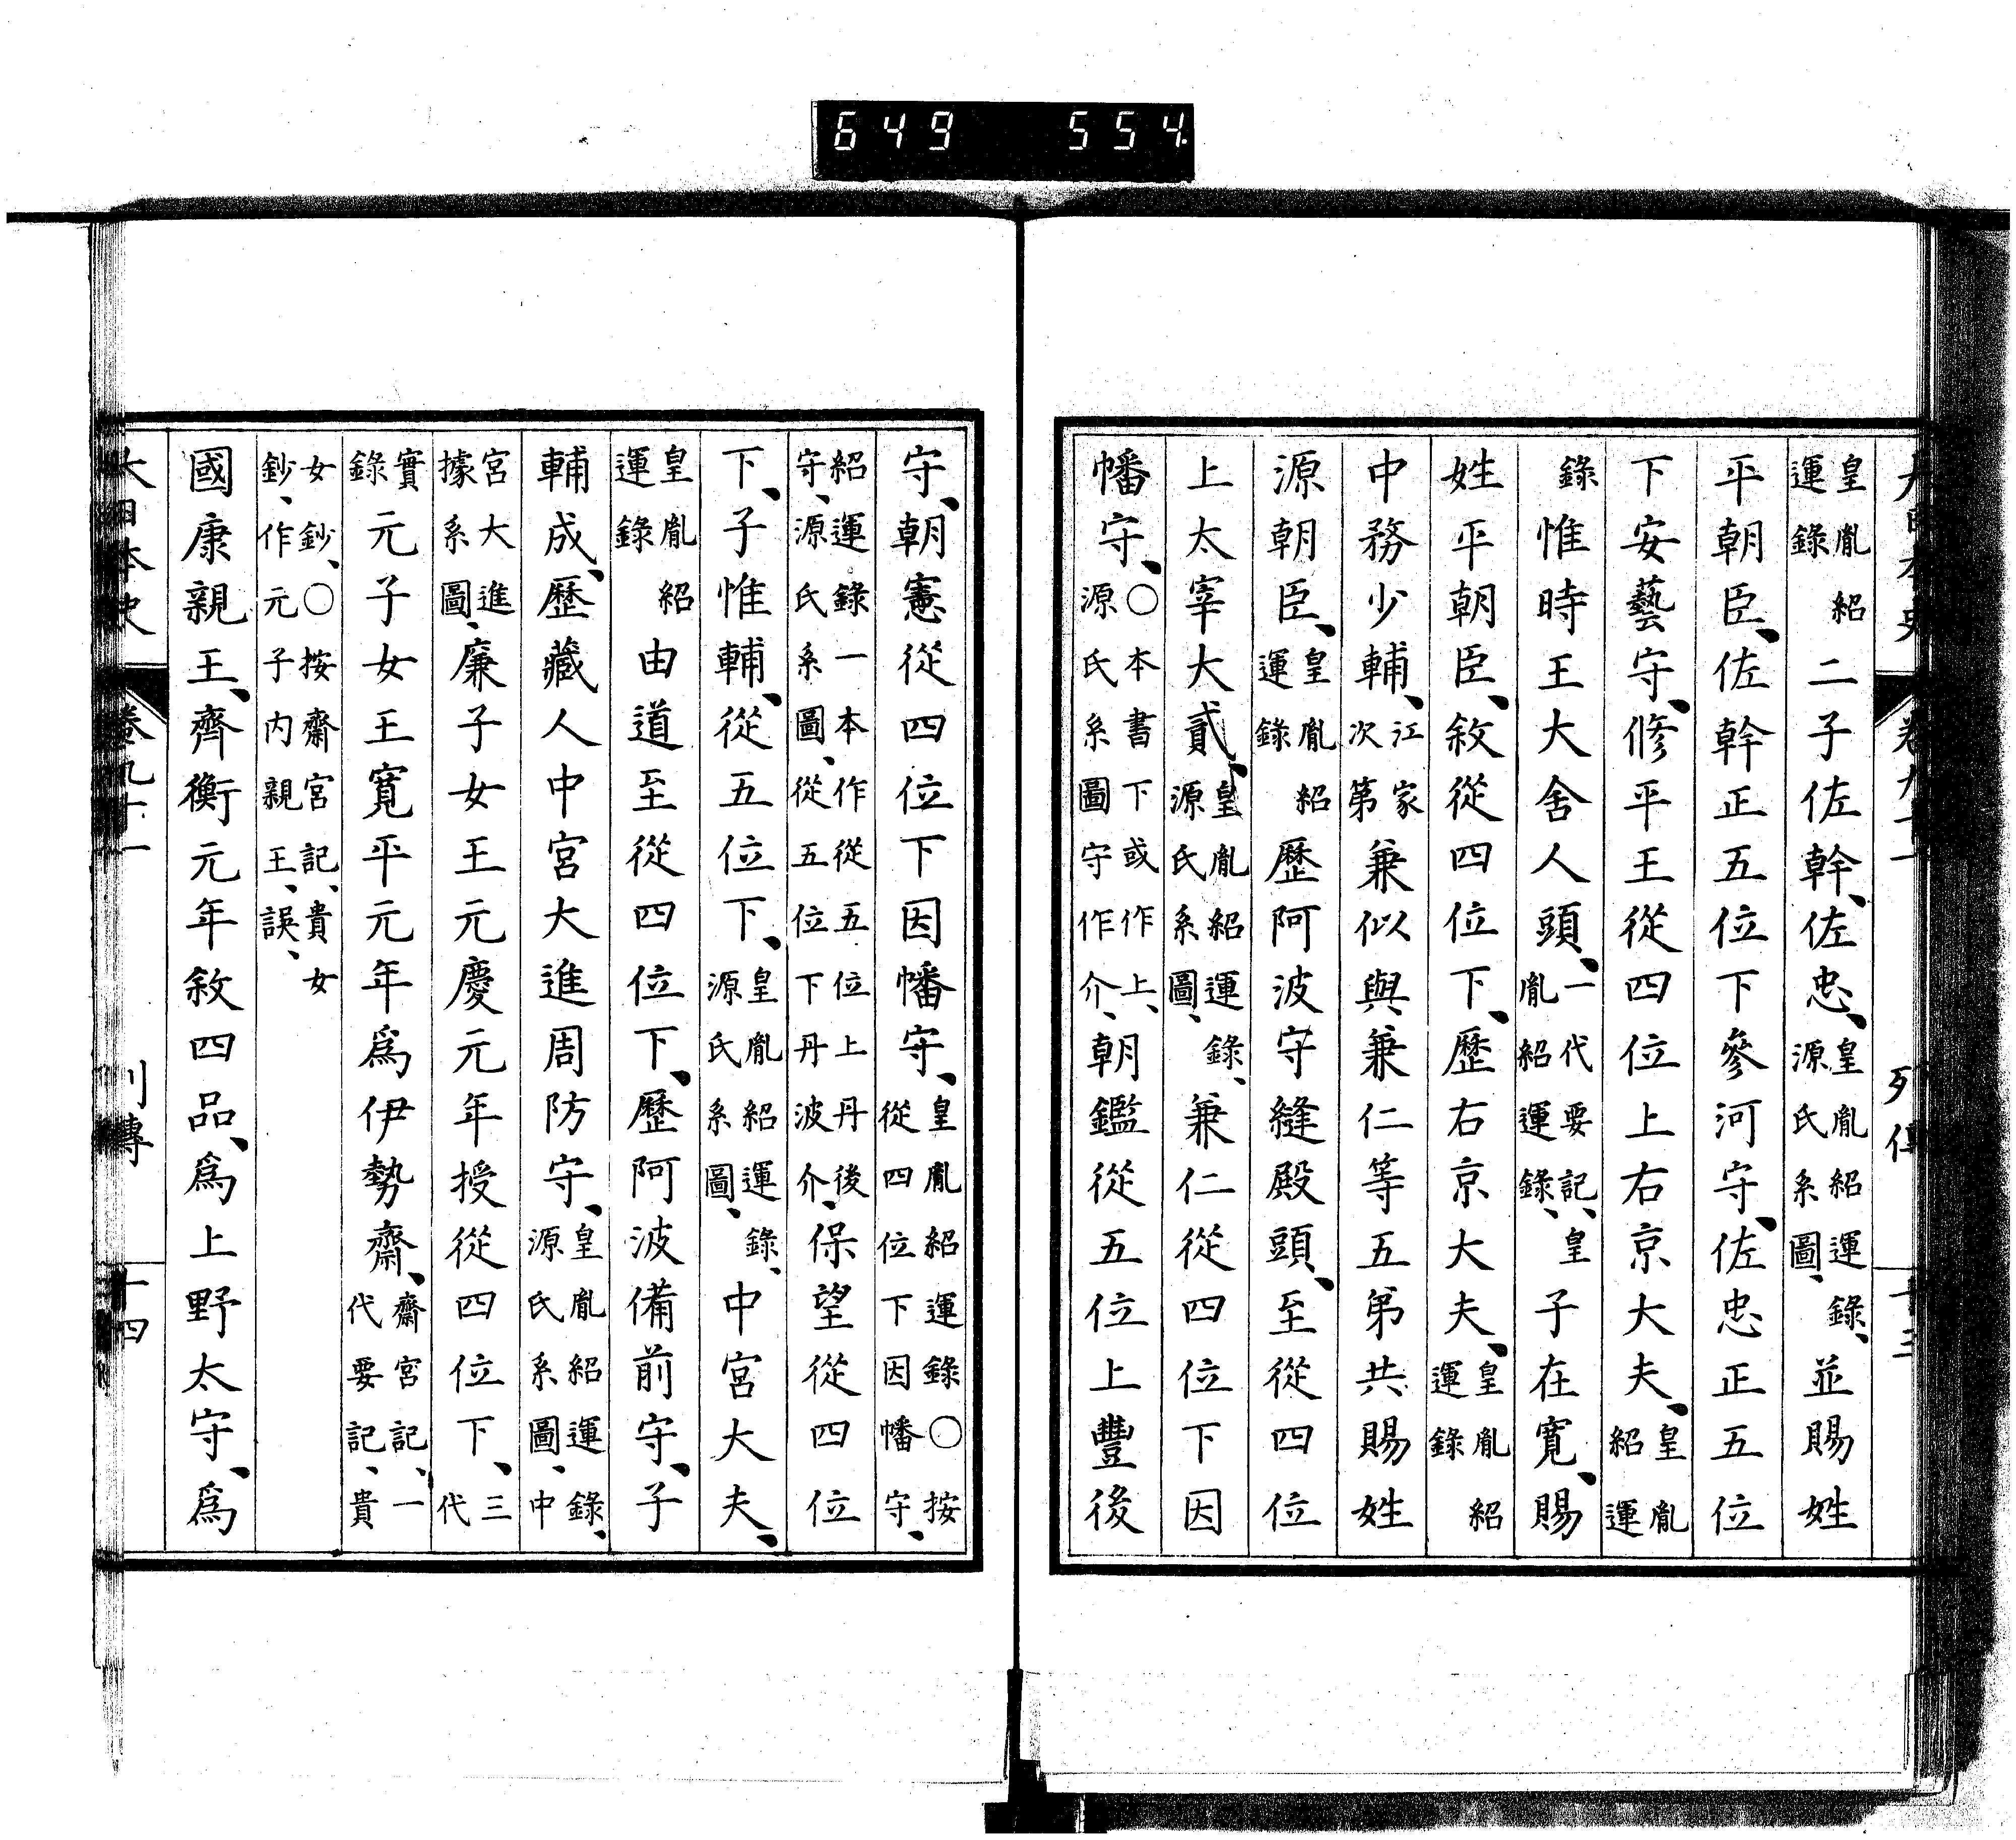 大日本史 卷九十一 列傳 十三
皇胤紹運錄二子佐幹、佐忠、皇胤紹運錄、源氏系圖、並賜姓
平朝臣、佐幹正五位下參河守、佐忠正五位
下安藝守、修平王從四位上右京大夫、皇胤紹運
錄惟時王大舍人頭、一代要記、皇胤紹運錄、子在寬、賜
姓平朝臣、敘從四位下、歷右京大夫、皇胤紹運錄
中務少輔、江家次第兼似與兼仁等五弟共賜姓
源朝臣、皇胤紹運錄歷阿波守縫殿頭、至從四位
上太宰大貳、皇胤紹運錄、源氏系圖、兼仁從四位下因
幡守、〇本書下或作上、源氏系圖守作介、朝鑑從五位上豐後
守、朝憲從四位下因幡守、皇胤紹運錄〇按從四位下因幡守、
紹運錄一本作從五位上丹後守、源氏系圖、從五位下丹波介、保望從四位
下、子惟輔、從五位下、皇胤紹運錄、源氏系圖、中宮大夫、
皇胤紹運錄由道至從四位下、歷阿波備前守、子
輔成、歷藏人中宮大進周防守、皇胤紹運錄、源氏系圖、中
宮大進據系圖、廉子女王元慶元年授從四位下、三代
實錄元子女王寬平元年爲伊勢齋、齋宮記、一代要記、貴
女鈔、〇按齋宮記、貴女鈔、作元子內親王、誤、
國康親王、齊衡元年敘四品、爲上野太守、爲
大日本史 卷九十一 列傳 十四
649 554